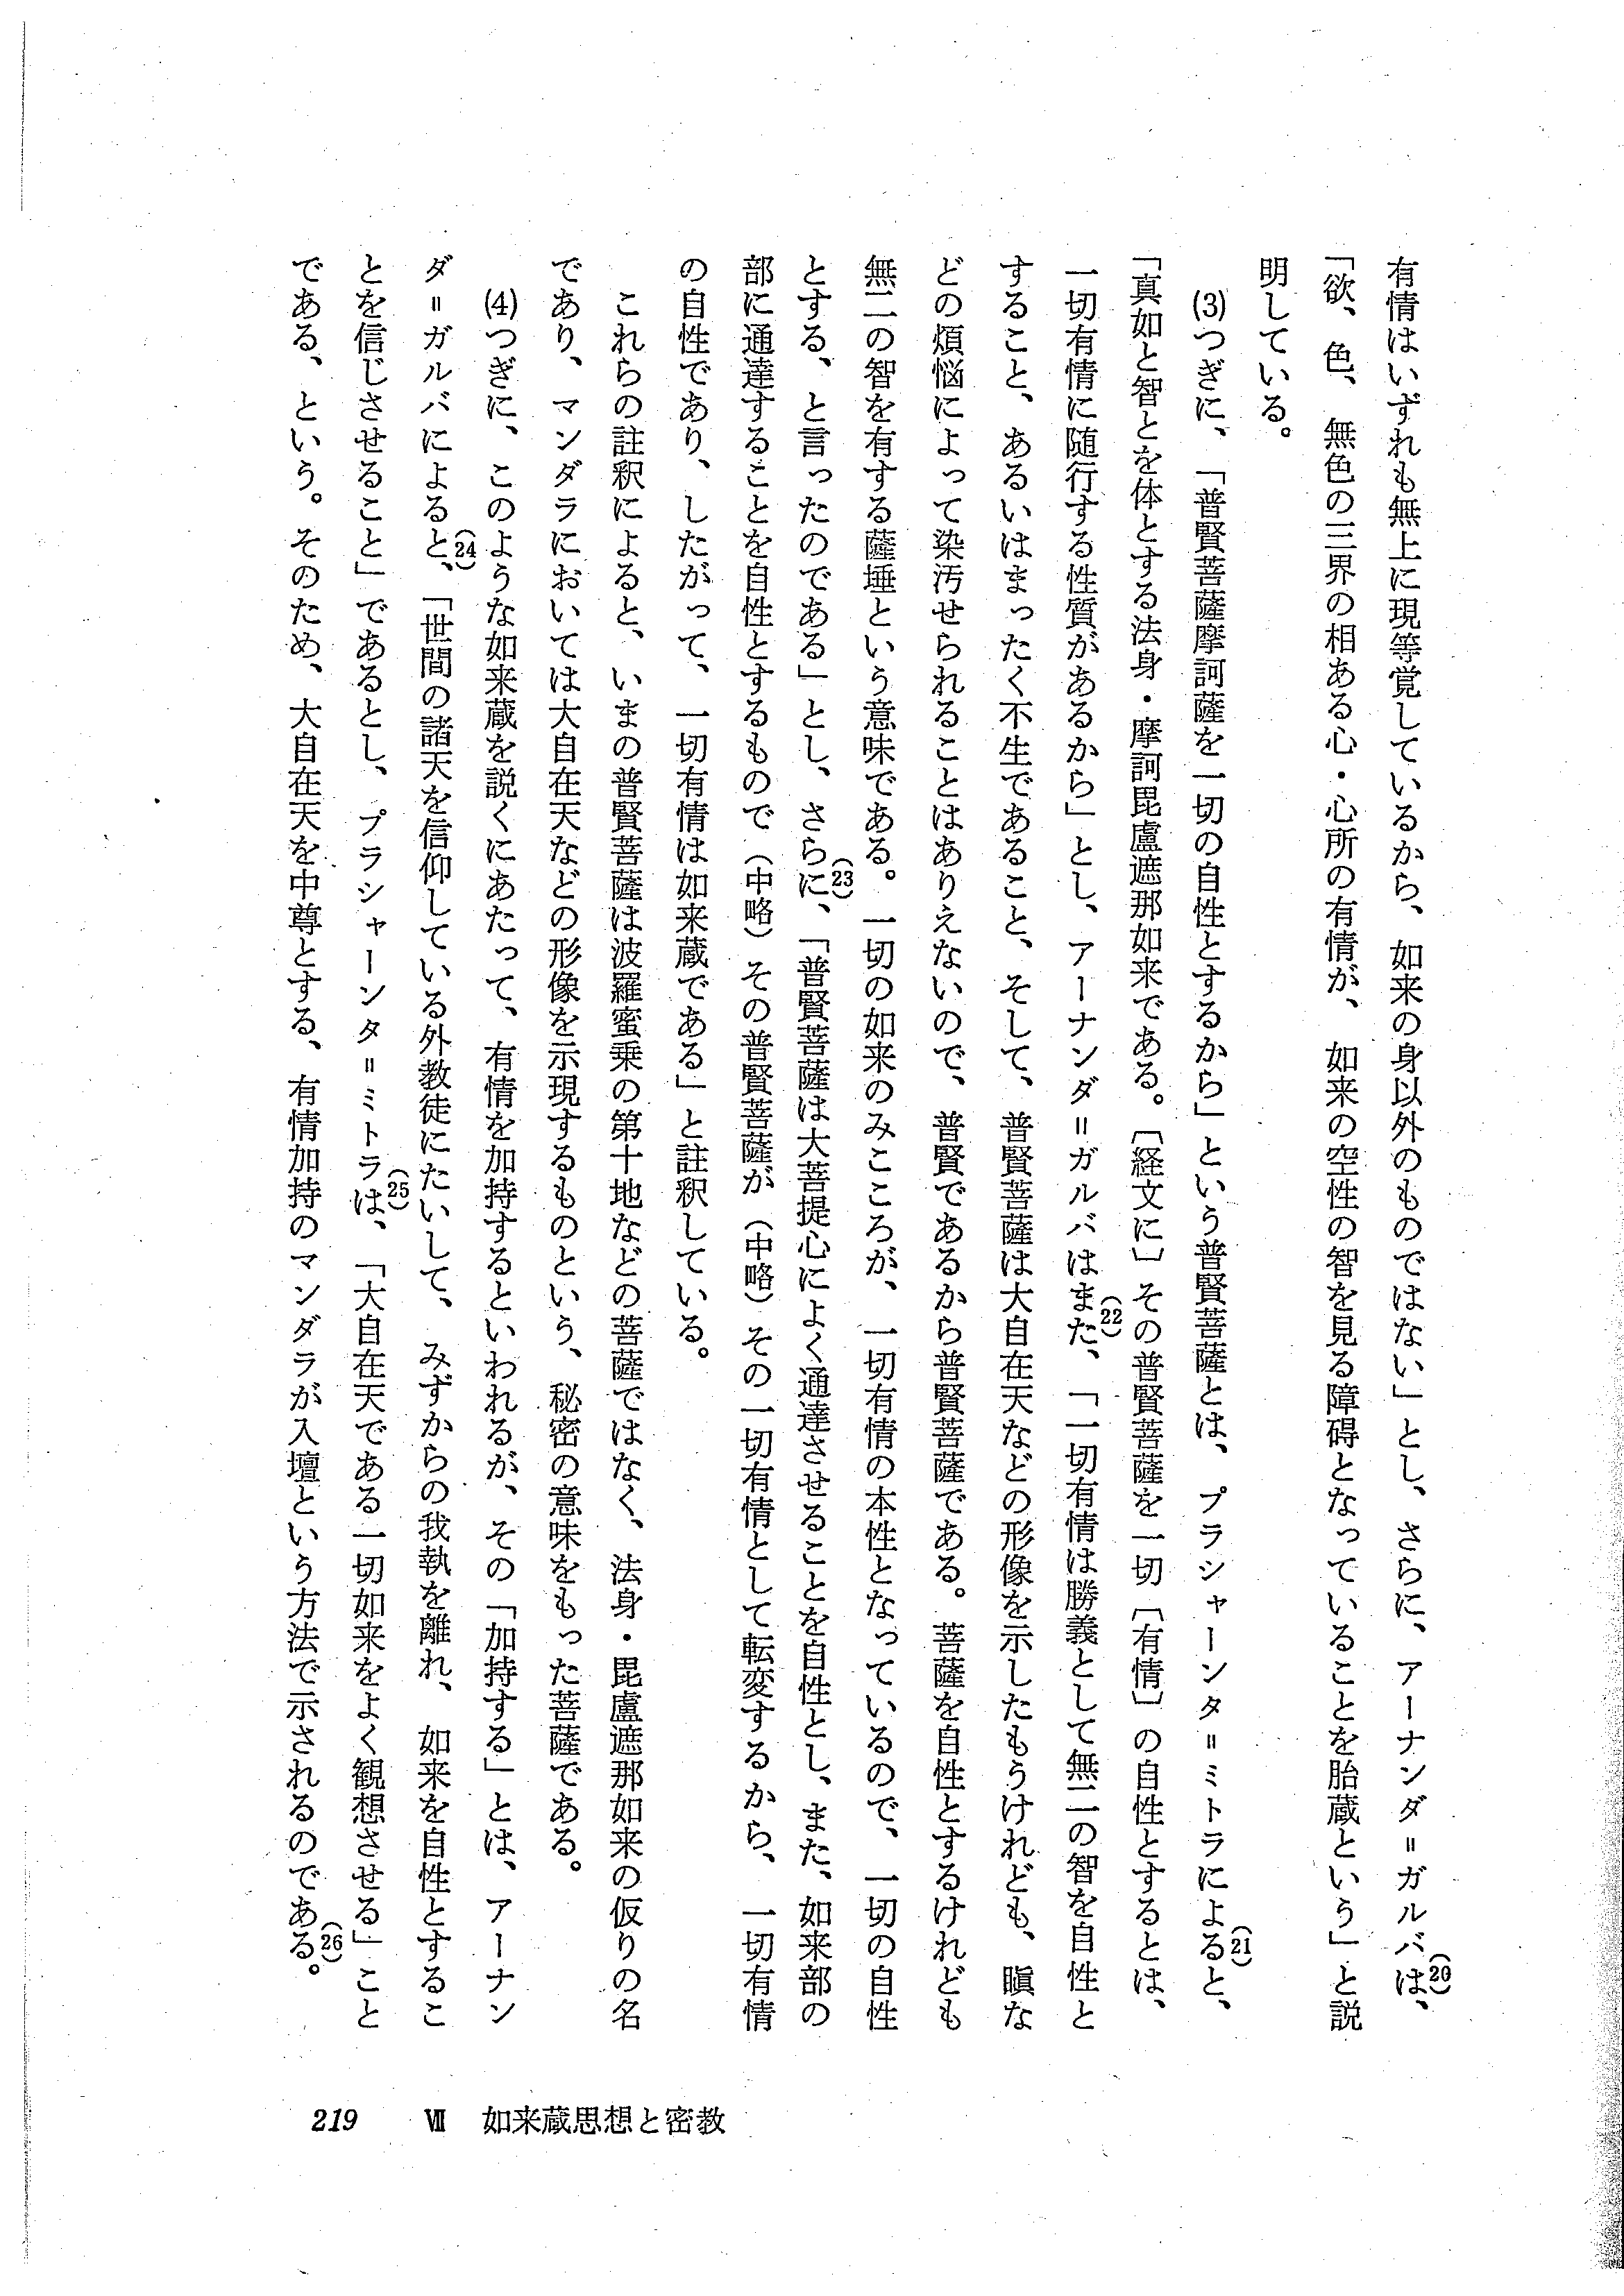 有情はいずれも無上に現等覚しているから、如来の身以外のものではない」とし、さらに、アーナンダ＝ガルバは、(20)
「欲、色、無色の三界の相ある心・心所の有情が、如来の空性の智を見る障碍となっていることを胎蔵という」と説
明している。
(3)つぎに、「普賢菩薩摩訶薩を一切の自性とするから」という普賢菩薩とは、プラシャーンタ＝ミトラによると、(21)
「真如と智とを体とする法身・摩訶毘盧遮那如来である。〔経文に〕その普賢菩薩を一切〔有情〕の自性とするとは、
一切有情に随行する性質があるから」とし、アーナンダ＝ガルバはまた、(22)「一切有情は勝義として無二の智を自性と
すること、あるいはまったく不生であること、そして、普賢菩薩は大自在天などの形像を示したもうけれども、瞋な
どの煩悩によって染汚せられることはありえないので、普賢であるから普賢菩薩である。菩薩を自性とするけれども
無二の智を有する薩埵という意味である。一切の如来のみこころが、一切有情の本性となっているので、一切の自性
とする、と言ったのである」とし、さらに、(23)「普賢菩薩は大菩提心によく通達させることを自性とし、また、如来部の
部に通達することを自性とするもので（中略）その普賢菩薩が（中略）その一切有情として転変するから、一切有情
の自性であり、したがって、一切有情は如来蔵である」と註釈している。
これらの註釈によると、いまの普賢菩薩は波羅蜜乗の第十地などの菩薩ではなく、法身・毘盧遮那如来の仮りの名
であり、マンダラにおいては大自在天などの形像を示現するものという、秘密の意味をもった菩薩である。
(4)つぎに、このような如来蔵を説くにあたって、有情を加持するといわれるが、その「加持する」とは、アーナン
ダ＝ガルバによると、(24)「世間の諸天を信仰している外教徒にたいして、みずからの我執を離れ、如来を自性とするこ
とを信じさせること」であるとし、プラシャーンタ＝ミトラは、(25)「大自在天である一切如来をよく観想させる」こと
である、という。そのため、大自在天を中尊とする、有情加持のマンダラが入壇という方法で示されるのである。(26)
219 Ⅶ 如来蔵思想と密教